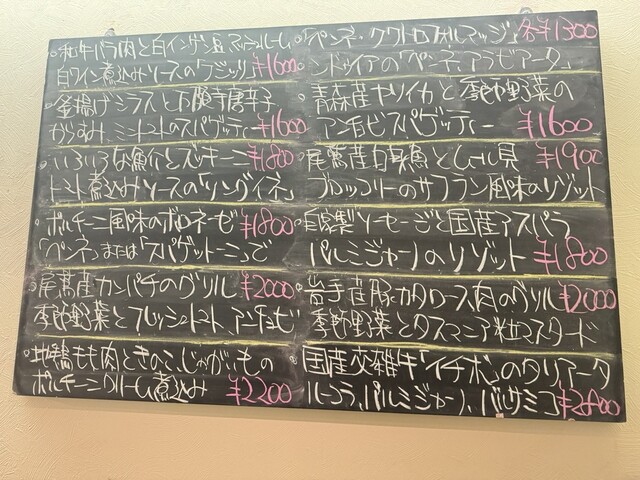 和牛バラ肉と白インゲン豆、マッシュルーム
白ワイン煮込みソースの「フジッリ」 ¥1600
釜揚げシラスと万願寺唐辛子
からすみ、ミニトマトのスパゲッティー ¥1600
いろいろな魚介とズッキーニ ¥1800
トマト煮込みソースの「リングイネ」
ポルチーニ風味のボロネーゼ ¥1800
「ペンネ」または「スパゲットーニ」で
尾鷲産カンパチのグリル ¥2000
季節野菜とフレッシュトマト、アンチョビ
地鶏もも肉ときのこ、じゃがいもの
ポルチーニクリーム煮込み ¥2200
ペンネ・クワトロフォルマッジ 各¥1300
ンドゥイアの「ペンネ・アラビアータ」
青森産ヤリイカと季節野菜の
アンチョビスパゲッティー ¥1600
尾鷲産白身魚とムール貝 ¥1900
ブロッコリーのサフラン風味のリゾット
自家製ソーセージと国産アスパラ
パルミジャーノのリゾット ¥1800
岩手産豚カタロース肉のグリル ¥2000
季節野菜とタスマニア粒マスタード
国産交雑牛「イチボ」のタリアータ
ルーコラ、パルミジャーノ、バルサミコ ¥2800